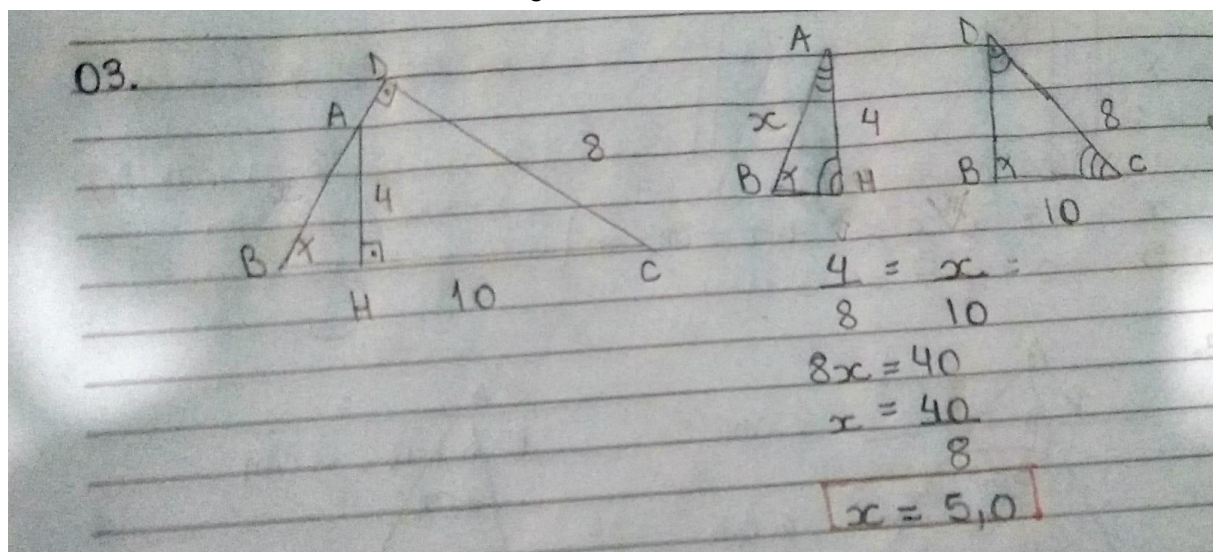 03.
D
A
8
4
B x
H 10 C
A
x 4
B x H
D
8
B x C
10
4 = x =
8 10
8x = 40
x = 40
8
x = 5,0